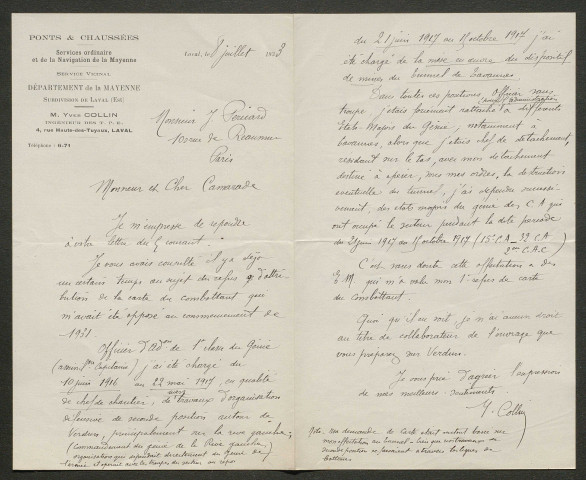 PONTS & CHAUSSÉES
Services ordinaire
et de la Navigation de la Mayenne
SERVICE VICINAL
DÉPARTEMENT de la MAYENNE
SUBDIVISION DE LAVAL (Est)
M. YVES COLLIN
INGÉNIEUR DES T. P. E.
4, rue Haute-des-Tuyaux, LAVAL
Téléphone : 6-71
Laval, le 8 juillet 1933
Monsieur J.
rue de Réaumur
Paris
Monsieur et Cher Camarade
Je m'empresse de répondre
à votre lettre du 6 courant.
Je vous avais consulté il y a déjà
un certain temps au sujet du refus d'attri-
bution de la carte du Combattant qui
m'avait été opposé au commencement de
1931.
Officier d'Adon de 1re classe du Génie
(assimon Capitaine) j'ai été chargé du
10 juin 1916 au 22 mai 1917, en qualité
de chef de chantier, de travaux d'organisation
défensive de seconde position autour de
Verdun, principalement sur la rive gauche;
(Commandement du génie de la Rive gauche,
organisation qui dépendait directement du Génie de
l'armée et opérait avec les troupes du secteur au repos
du 21 juin 1917 au 15 octobre 1917 j'ai
été chargé de la mise en œuvre du dispositif
de mines du tunnel de Tavannes.
Dans toutes ces positions, officier sans
troupe, j'étais forcément rattaché à différents
Etats-Majors du Génie, notamment à
Tavannes, alors que j'étais chef de détachement,
résidant sur le tas, avec mon détachement
destiné à opérer, sous mes ordres, la destruction
éventuelle du tunnel, j'ai dépendu successi-
vement, des états majors du génie des C A qui
ont occupé le secteur pendant la dite période
du 21 juin 1917 au 15 octobre 1917 (15e C.A _ 32 C.A
2me C.A.C)
C'est sans doute cette affectation à des
E.M. qui m'a valu mon refus de carte
du Combattant.
Quoi qu'il en soit, je n'ai aucun droit
au titre de collaborateur de l'ouvrage que
vous préparez sur Verdun.
Je vous prie d'agréer l'expression
de mes meilleurs sentiments
Y. Collin
Ma demande de Carte était surtout basée sur
mon affectation au tunnel - bien que nos travaux de
seconde position se fissent à travers les lignes de
batteries.